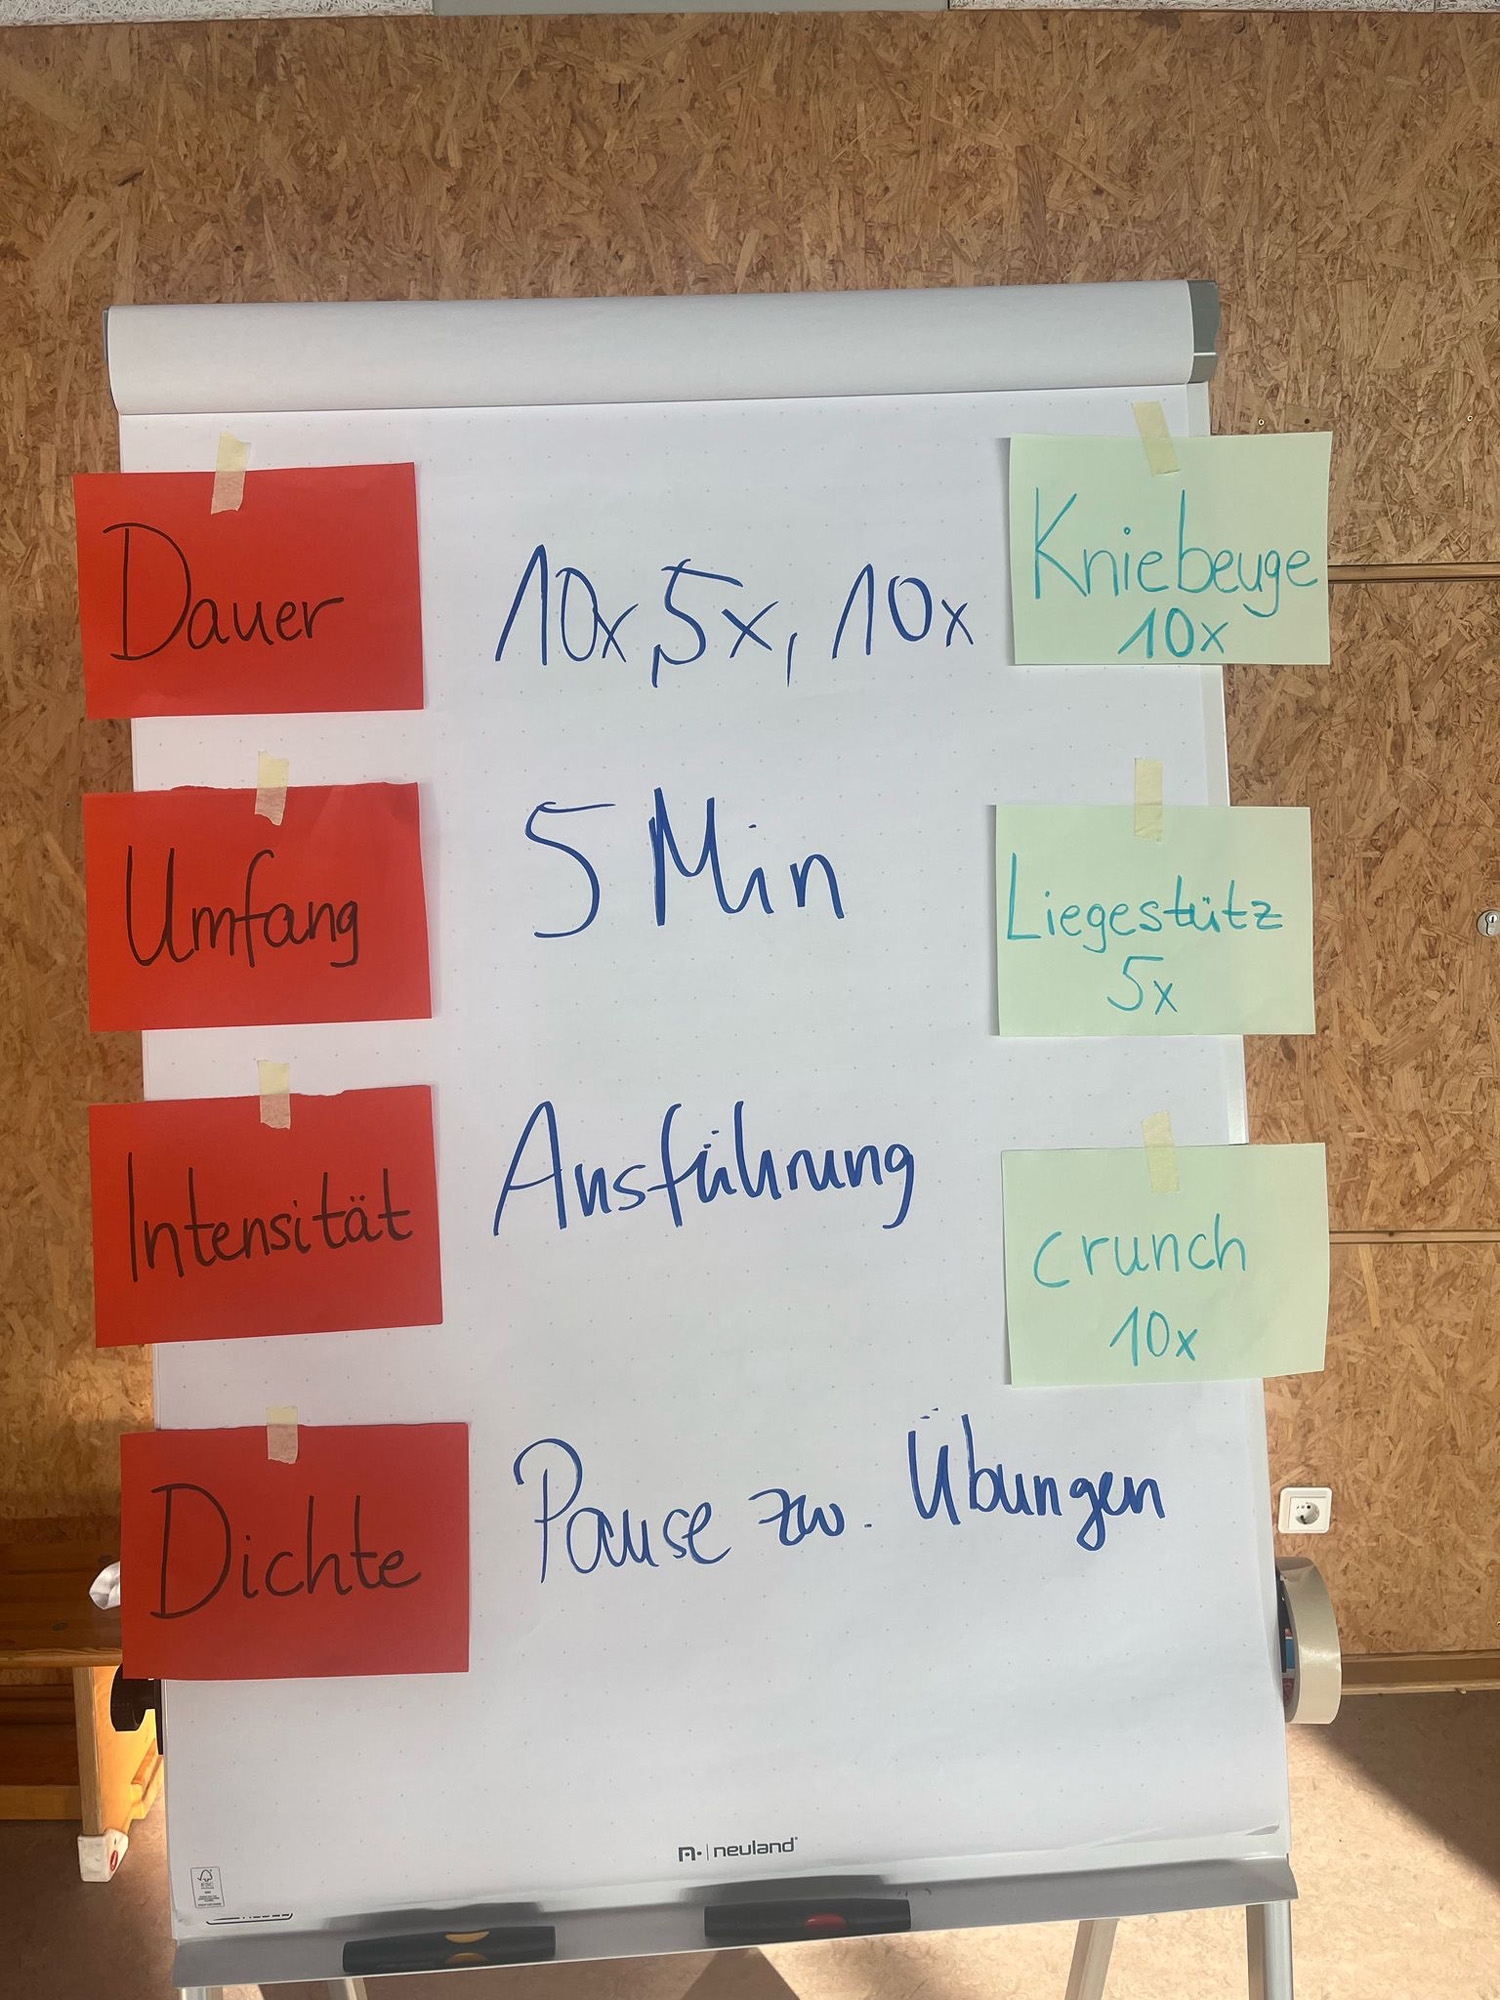 Dauer
10x, 5x, 10x
Kniebeuge
10x
Umfang
5 Min
Liegestütz
5x
Intensität
Ausführung
crunch
10x
Dichte
Pause zw. Übungen
neuland
FSC